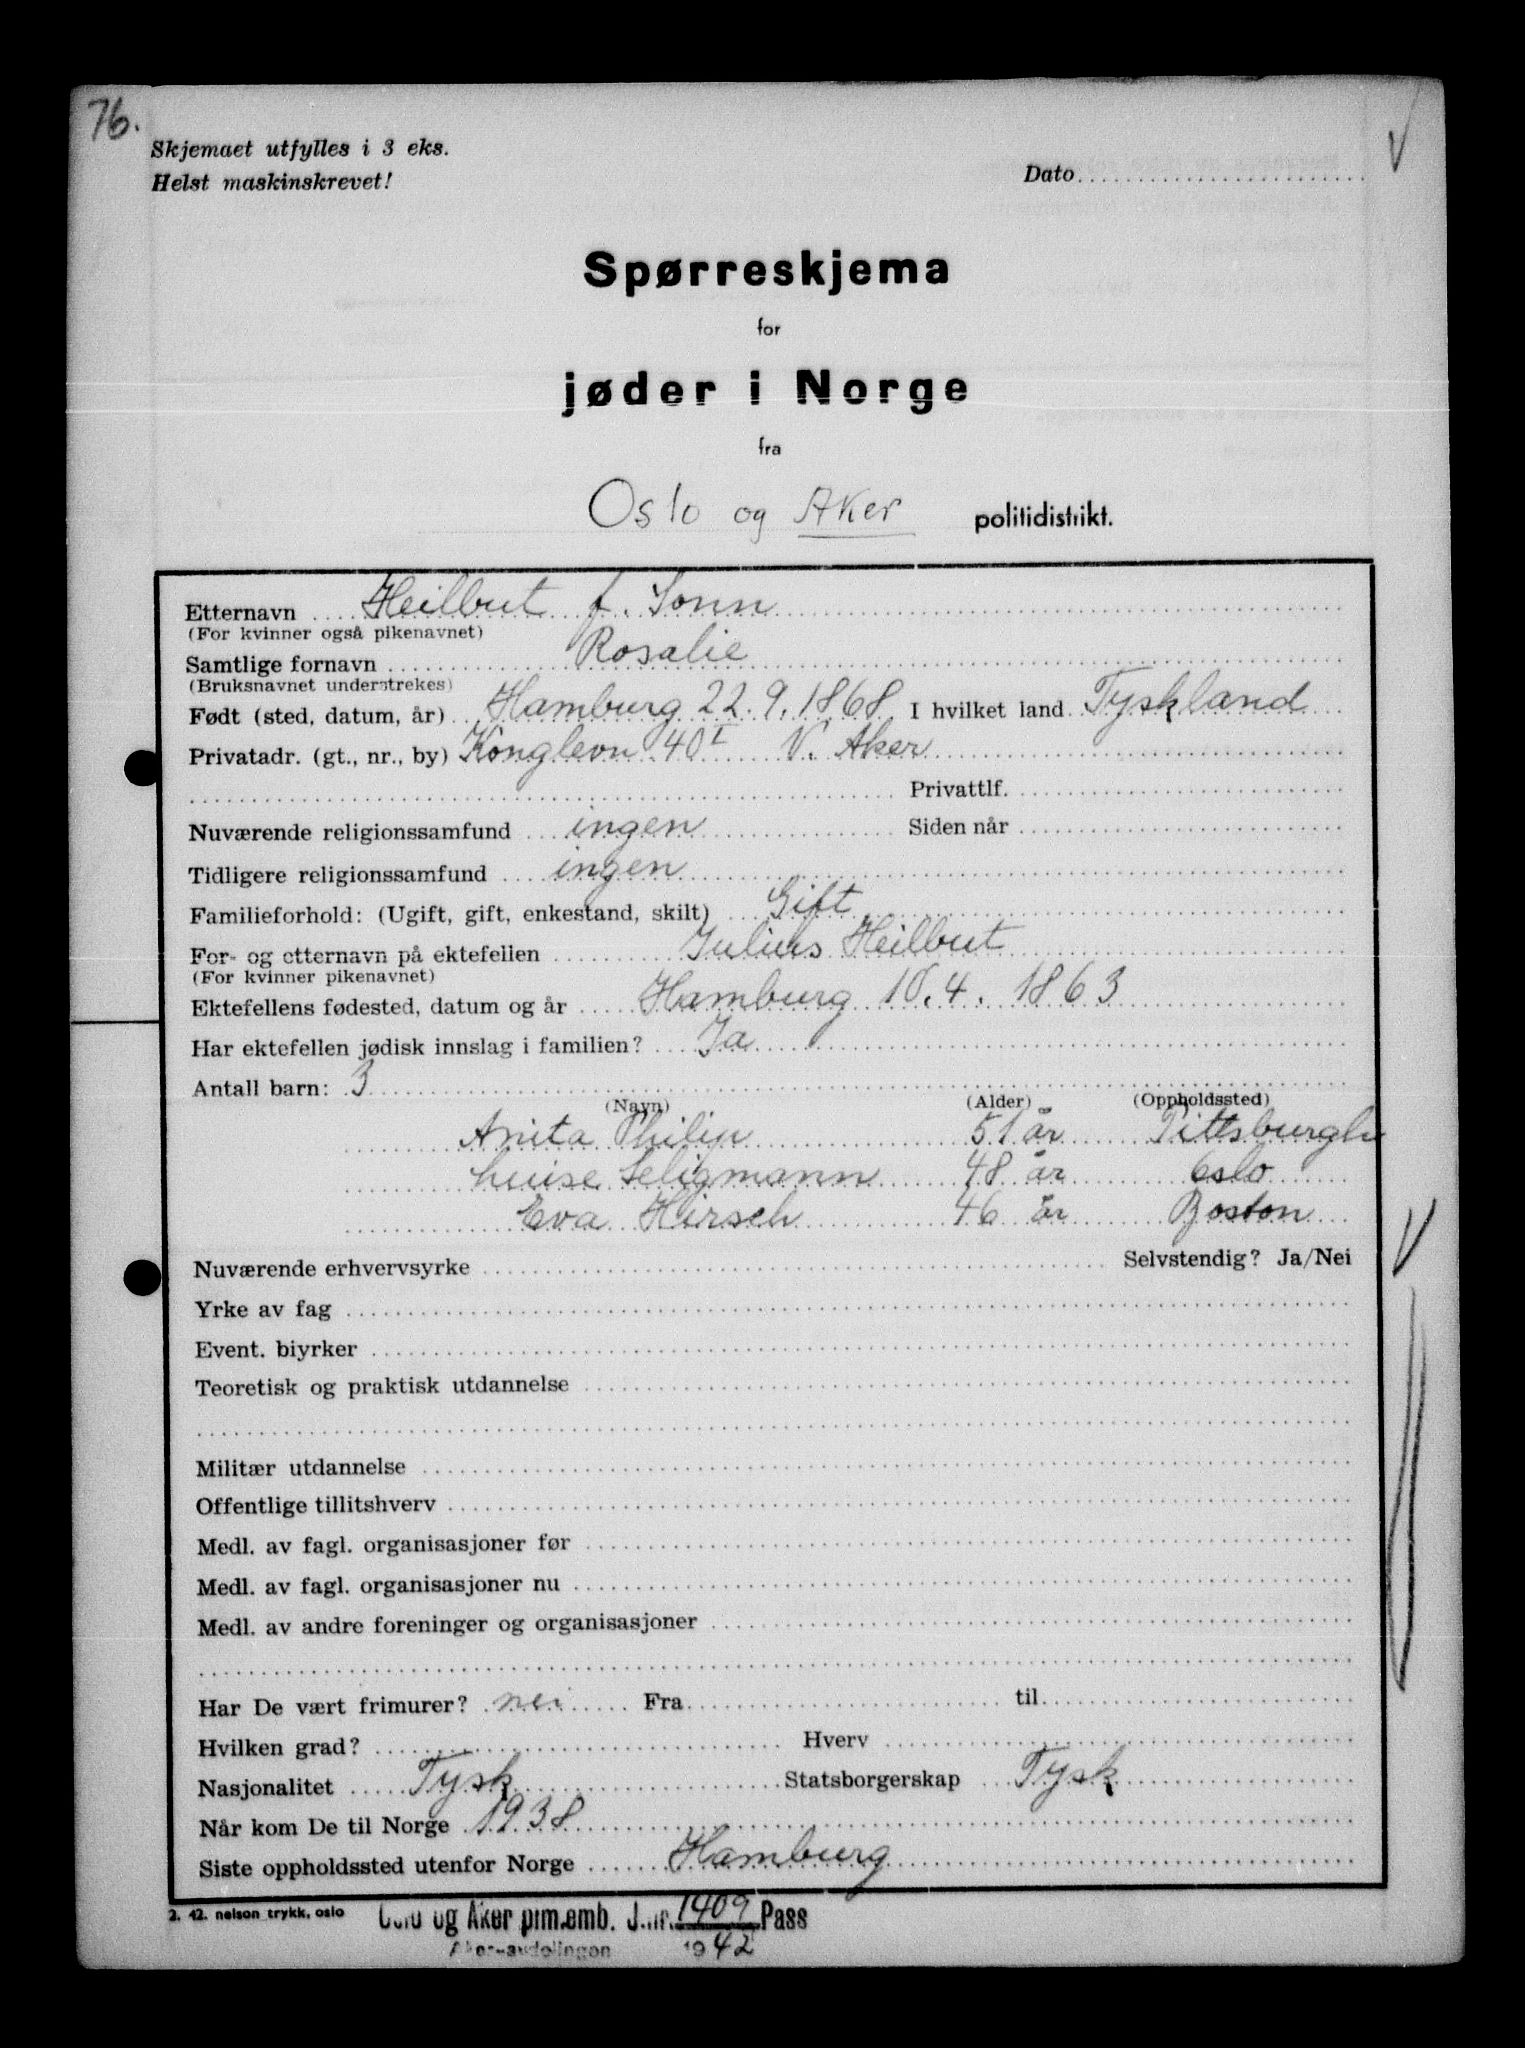 76.
Skjemaet utfylles i 3 eks.
Helst maskinskrevet!
Dato
Spørreskjema
for
jøder i Norge
fra
Oslo og Aker politidistrikt.
Etternavn Heilbut f. Sonn
(For kvinner også pikenavnet)
Samtlige fornavn Rosalie
(Bruksnavnet understrekes)
Født (sted, datum, år) Hamburg 22.9.1868 I hvilket land Tyskland
Privatadr. (gt., nr., by) Konglevn 40 I V. Aker
Privattlf.
Nuværende religionssamfund ingen Siden når
Tidligere religionssamfund ingen
Familieforhold: (Ugift, gift, enkestand, skilt) Gift
For- og etternavn på ektefellen Julius Heilbut
(For kvinner pikenavnet)
Ektefellens fødested, datum og år Hamburg 10.4.1863
Har ektefellen jødisk innslag i familien? Ja
Antall barn: 3
(Navn) (Alder) (Oppholdssted)
Anita Philip 51 år Pittsburgh
Luise Seligmann 48 år Oslo
Eva Hirsch 46 år Boston
Nuværende erhvervsyrke Selvstendig? Ja/Nei
Yrke av fag
Event. biyrker
Teoretisk og praktisk utdannelse
Militær utdannelse
Offentlige tillitshverv
Medl. av fagl. organisasjoner før
Medl. av fagl. organisasjoner nu
Medl. av andre foreninger og organisasjoner
Har De vært frimurer? nei Fra til
Hvilken grad? Hverv
Nasjonalitet Tysk Statsborgerskap Tysk
Når kom De til Norge 1938
Siste oppholdssted utenfor Norge Hamburg
2. 42. nelson trykk, oslo
Oslo og Aker pim.emb. J.nr. 1409 Pass
Aker-avdelingen 1942